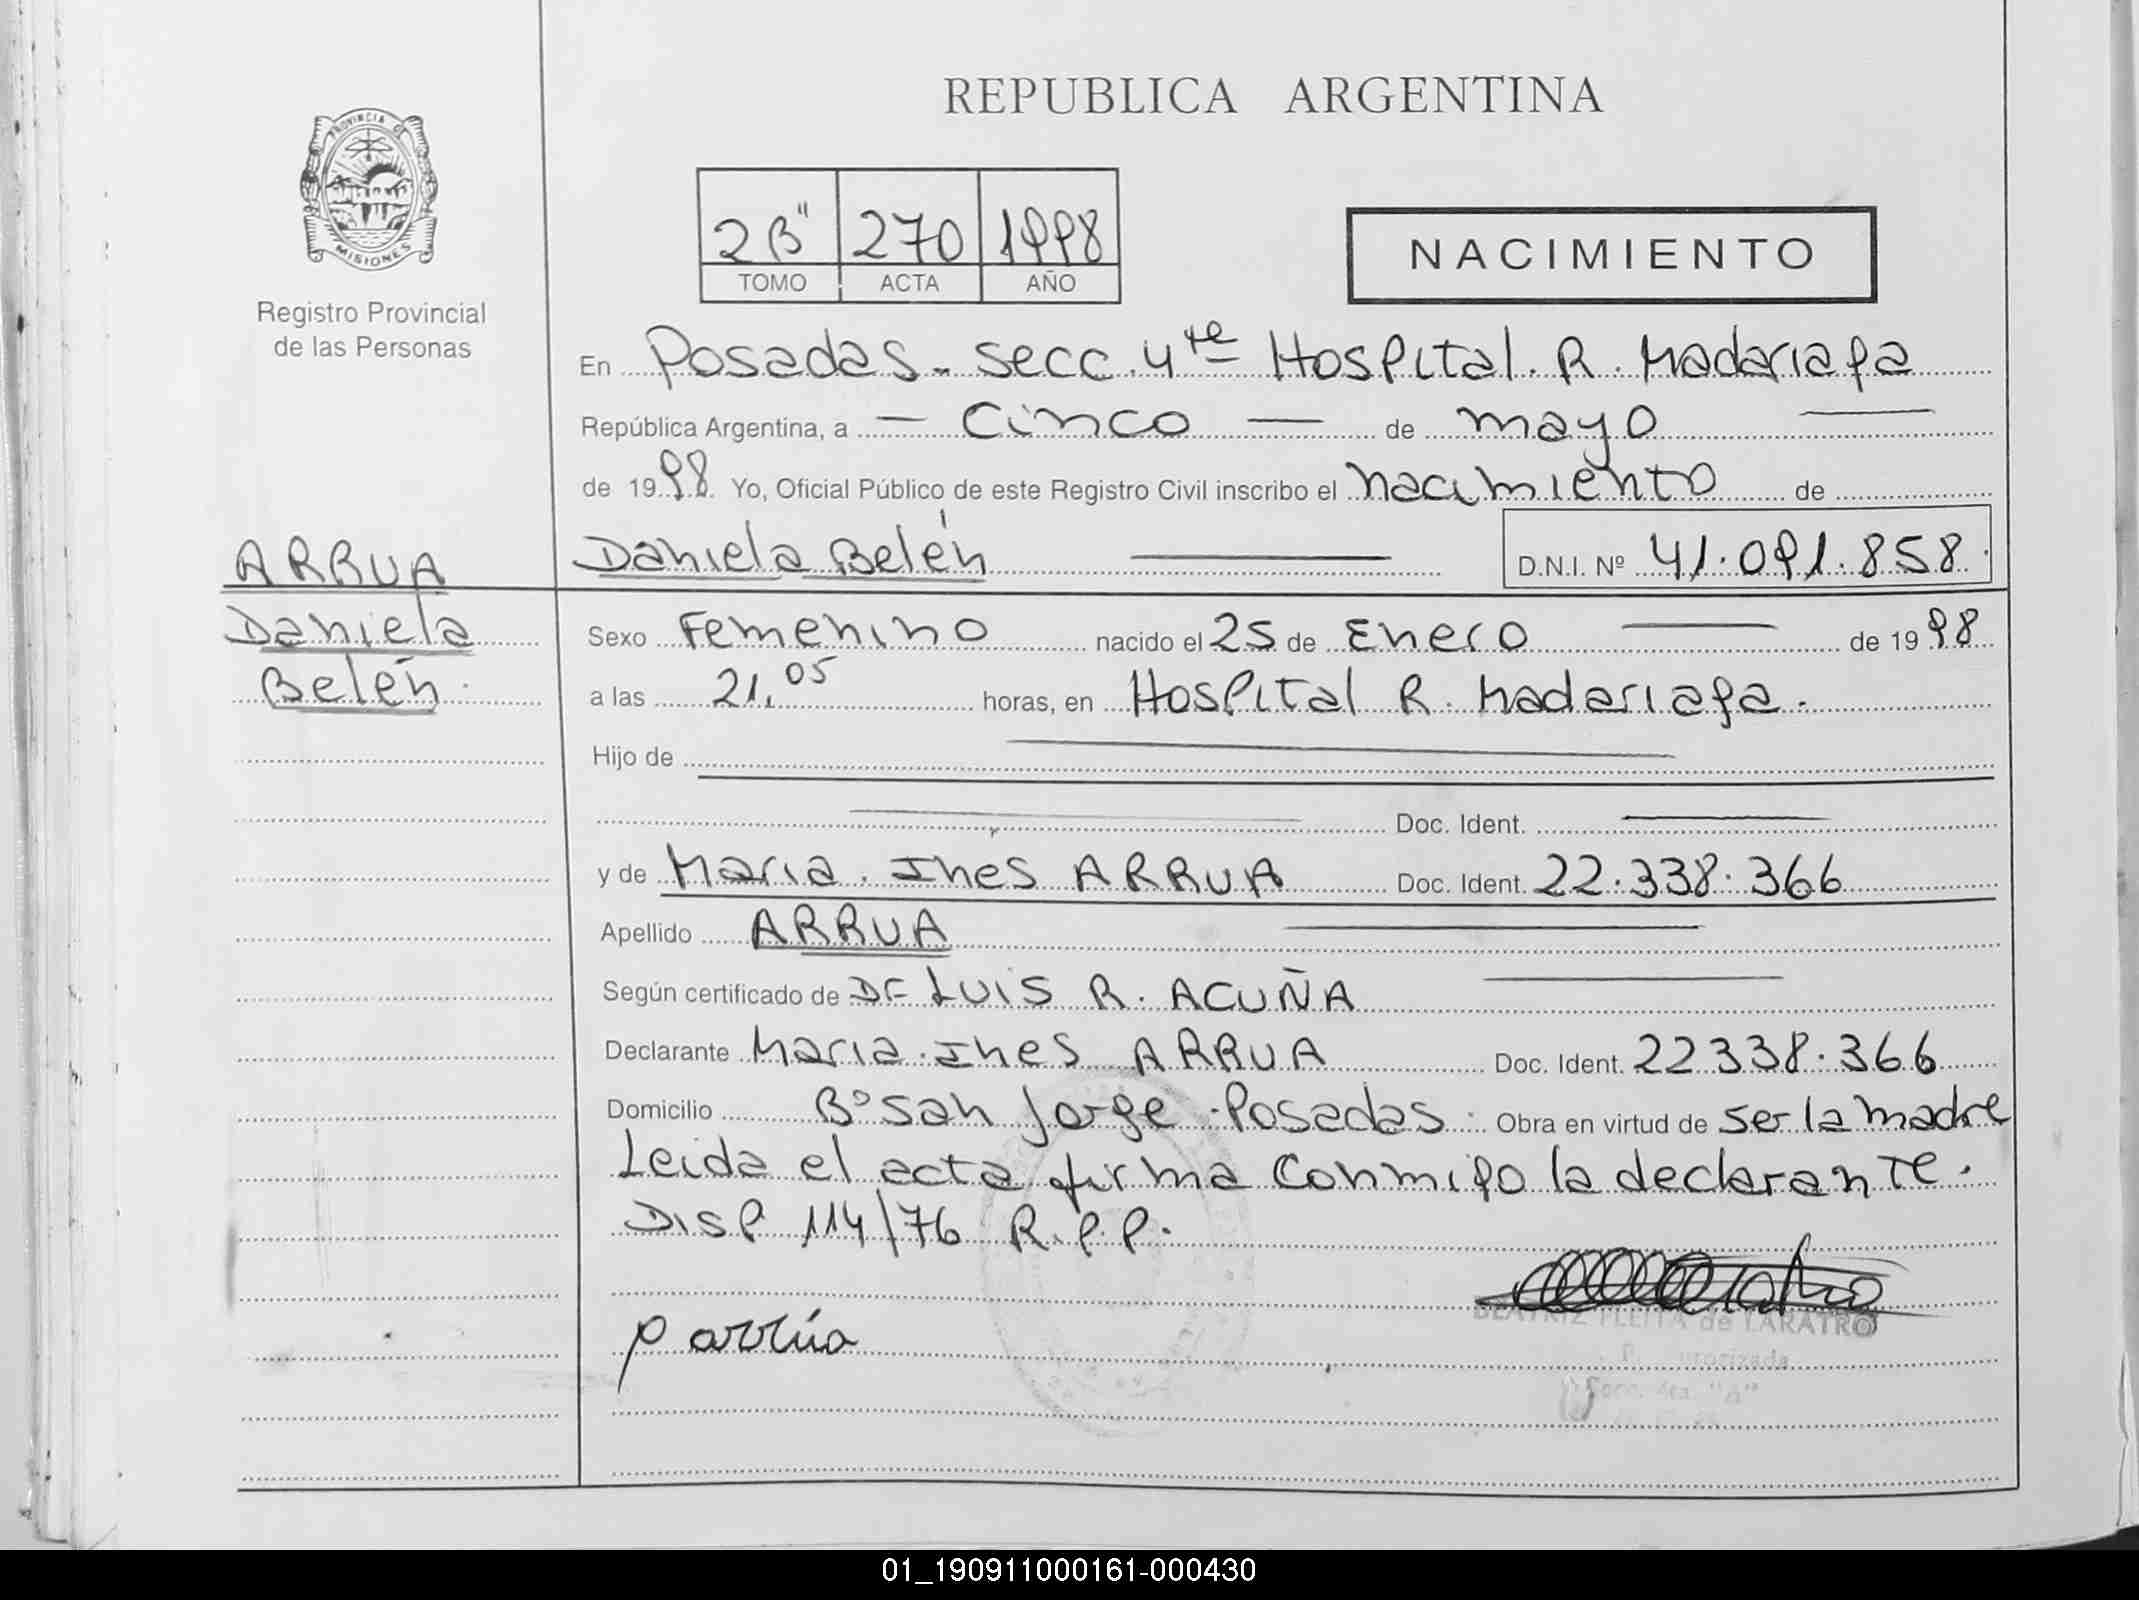 REPUBLICA ARGENTINA
PROVINCIA DE MISIONES
Registro Provincial
de las Personas
2B" 270 1998
TOMO ACTA AÑO
NACIMIENTO
En Posadas - secc. 4te Hospital. R. Madariaga
República Argentina, a — Cinco — de mayo —
de 1998. Yo, Oficial Público de este Registro Civil inscribo el nacimiento de
Daniela Belén — D.N.I. Nº 41.091.858.
ARRUA
Daniela
Belén.
Sexo Femenino nacido el 25 de Enero — de 1998
a las 21.05 horas, en Hospital R. Madariaga.
Hijo de —
— Doc. Ident. —
y de Maria. Inés ARRUA Doc. Ident. 22.338.366
Apellido ARRUA —
Según certificado de Dr LUIS R. ACUÑA —
Declarante Maria. Ines ARRUA Doc. Ident. 22338.366
Domicilio Bº San Jorge. Posadas. Obra en virtud de ser la madre
Leida el acta firma conmigo la declarante.
DISP 114/76 R.P.P.
BEATRIZ de LARATRO
arrúa
Secc. 4ta. "A"
01_190911000161-000430